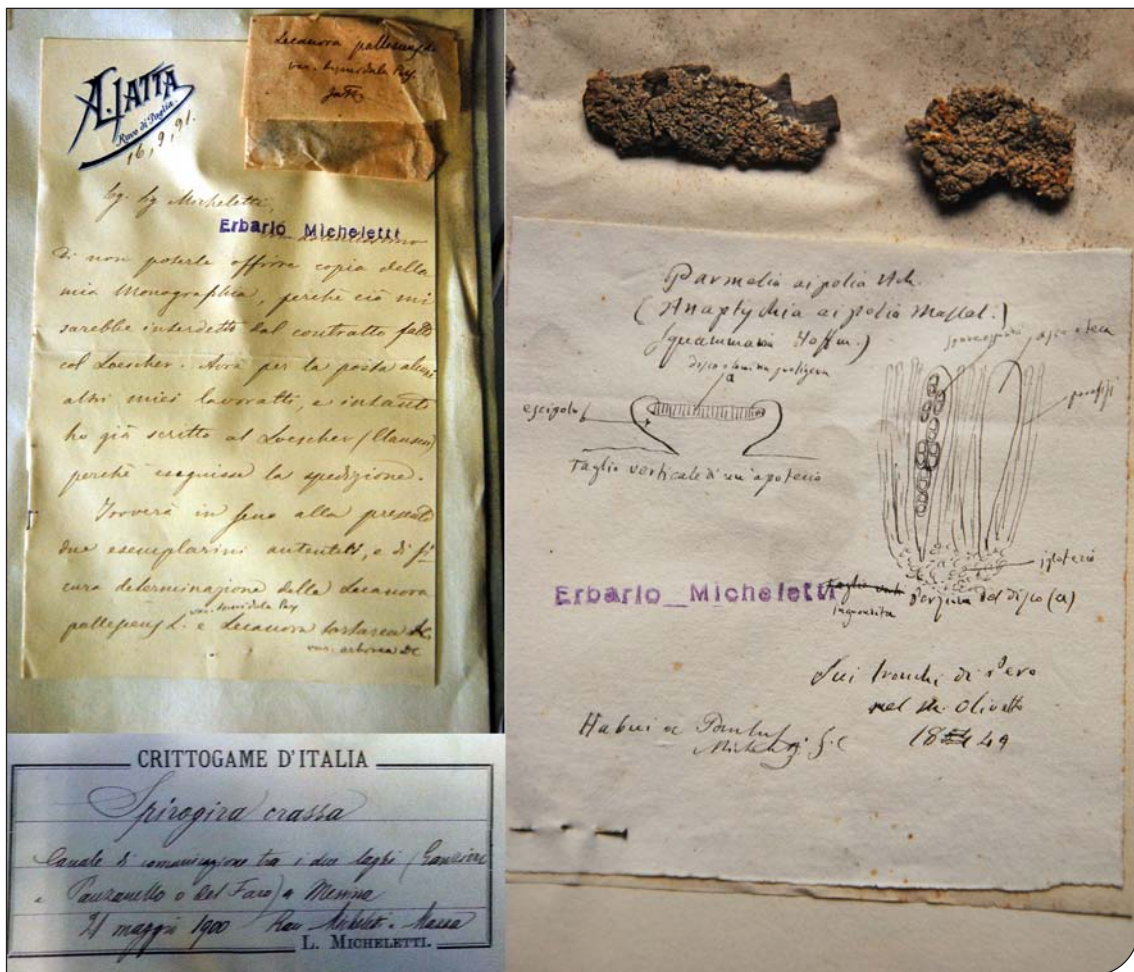 A. JATTA
Ruvo di Puglia
16, 9, 91.
Lecanora pallescens
var. tumidula Pers.
Jatta
Eg. Sig. Micheletti,
Erbario Micheletti
di non poterle offrire copia della
mia Monographia, perchè ciò mi
sarebbe interdetto dal contratto fatto
col Loescher. Avrà per la posta alcuni
altri miei lavoratti, e intanto
ho già scritto al Loescher (Clausen)
perchè eseguisse la spedizione.
Troverà in seno alla presente
due esemplarini autentici, e di si
cura determinazione della Lecanora
var. tumidula Pers
pallescens L. e Lecanora tartarea DC,
var. arborea DC
CRITTOGAME D'ITALIA
Spirogira crassa
Canale di comunicazione tra i due laghi (Ganzirri
e Panzanello o del Faro) a Messina
21 maggio 1900
L. MICHELETTI.
Parmelia aipolia Ach.
(Anaptychia aipolia Massal.)
Squammaria Hoffm.)
disco o lamina proligera
a
escipolo
Taglio verticale di un'apotecio
asco o teca
parafisi
ipotecio
Erbario Micheletti
Taglio vert.
ingrandita porzione del disco (a)
Sui tronchi di Pero
nel Olivetto
Habui a
1849